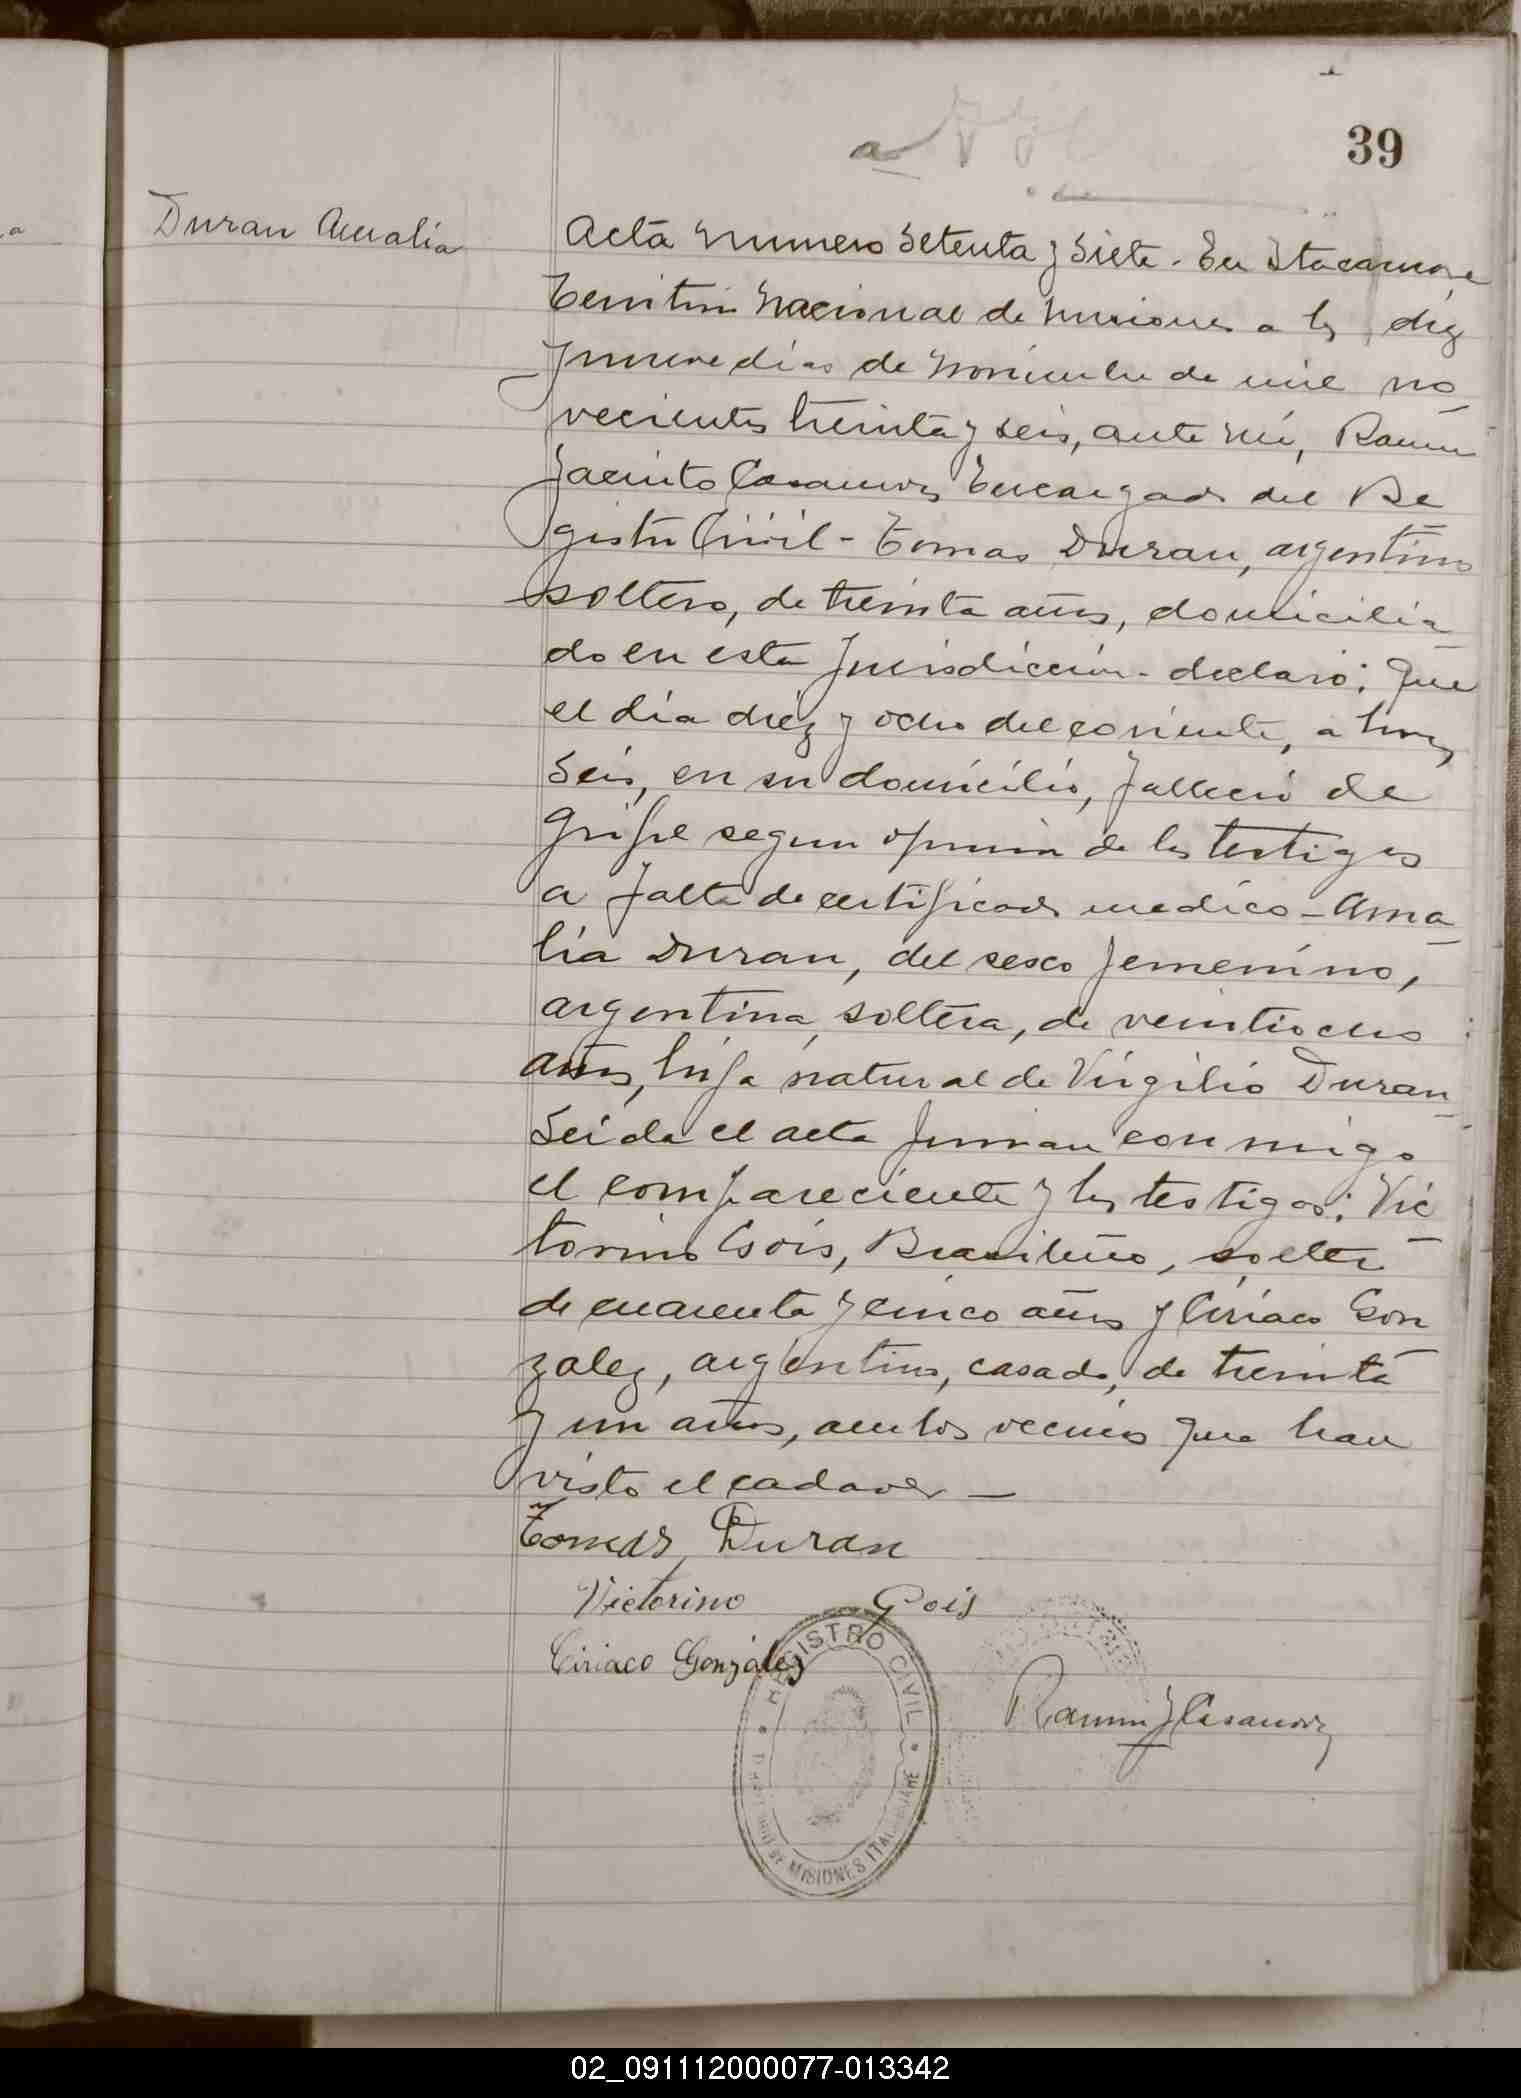 39
Duran Amalia
Acta numero Setenta y Siete. En Itacaruaré
Territorio Nacional de Misiones a los diez
y nueve dias de Noviembre de mil no
vecientos treinta y seis, ante mi, Ramon
Jacinto Casanova Encargado del Re
gistro Civil - Tomas Duran, argentino
soltero, de treinta años, domicilia
do en esta Jurisdicción - declaró: Que
el día diez y ocho del corriente, a horas
seis, en su domicilio, falleció de
Gripe segun opinion de los testigos
a falta de certificado medico - Ama
lia Duran, del sexo femenino,
argentina, soltera, de veintiocho
años, hija natural de Virgilio Duran
Leida el acta firman conmigo
el compareciente y los testigos: Vic
torino Gois, Brasileño, soltero
de cuarenta y cinco años y Ciriaco Gon
zalez, argentino, casado, de treinta
y un años, ambos vecinos que han
visto el cadaver —
Tomas Duran
Victorino Gois
Ciriaco Gonzalez
Ramon J Casanova
REGISTRO CIVIL
MISIONES
02_091112000077-013342